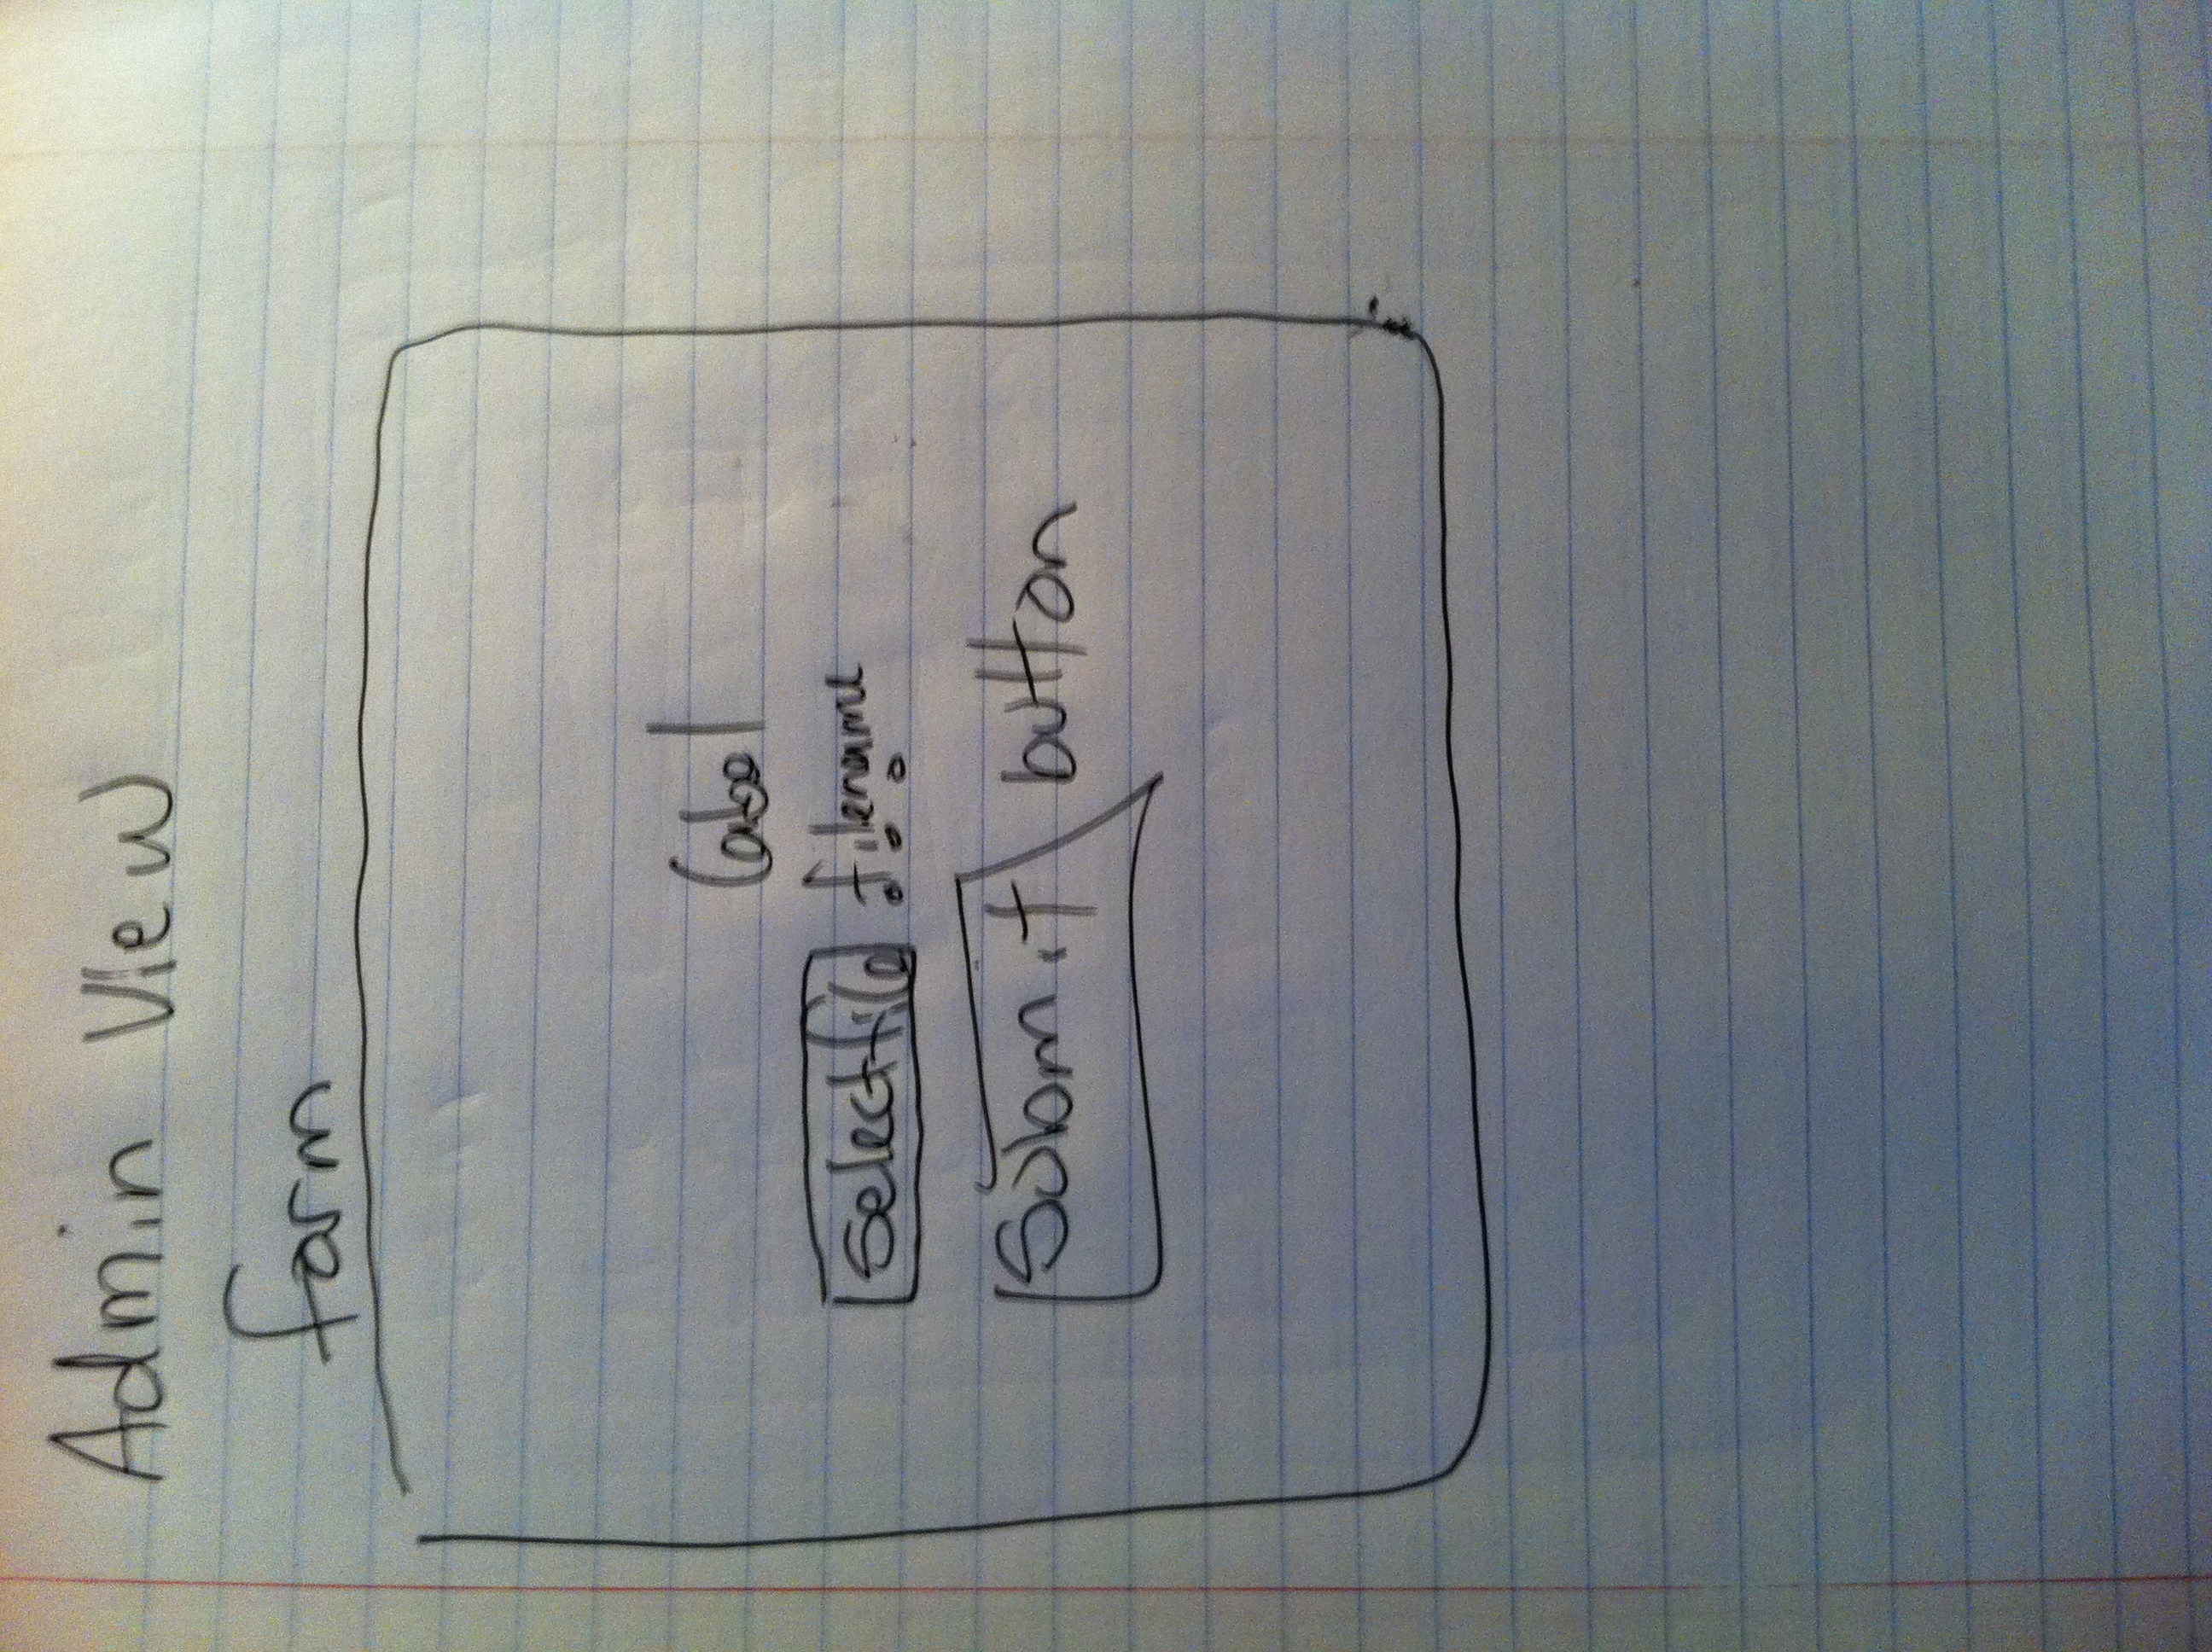 Admin View
form
label
Select file filename...
Submit button